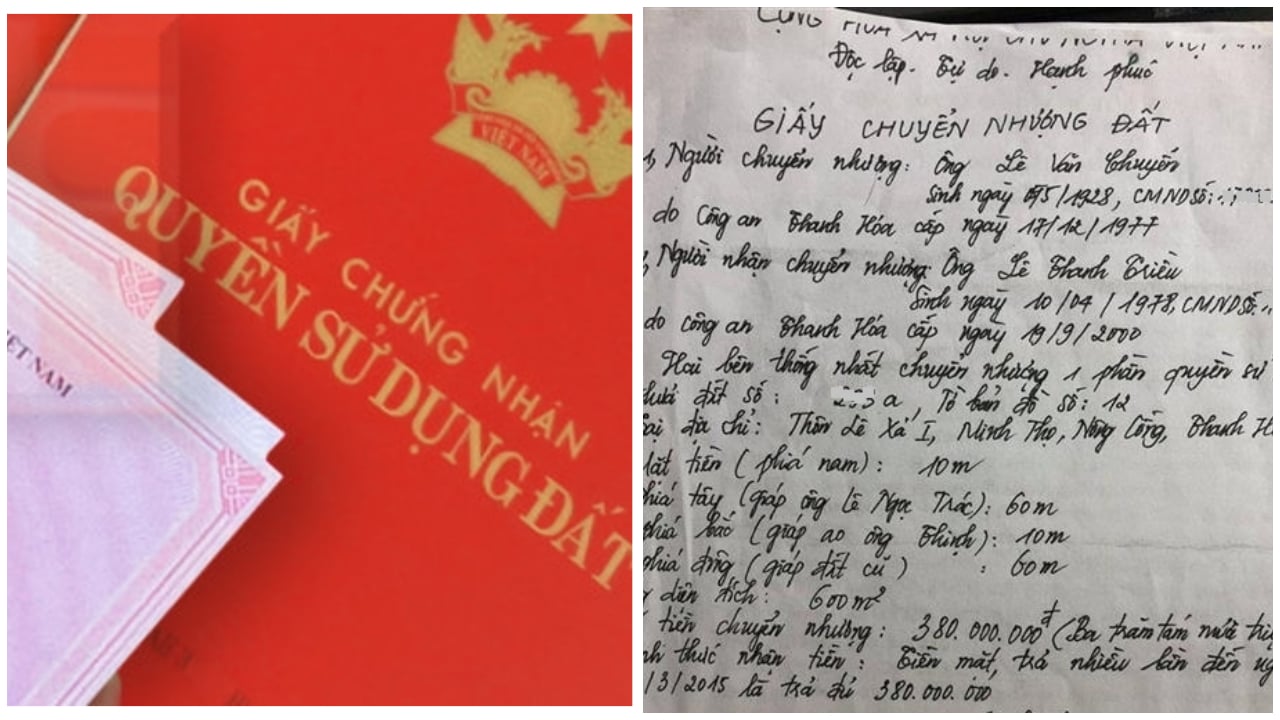 VIỆT NAM
GIẤY CHỨNG NHẬN
QUYỀN SỬ DỤNG ĐẤT
ỆT NAM
Độc lập. Tự do. Hạnh phúc
GIẤY CHUYỂN NHƯỢNG ĐẤT
1, Người chuyển nhượng: Ông Lê Văn Chuyến
Sinh ngày /1928, CMND Số:
do Công an Thanh Hóa cấp ngày 17/12/1977
, Người nhận chuyển nhượng: Ông Lê Thanh Triều
Sinh ngày 10/04/1978, CMND Số:
do công an Thanh Hóa cấp ngày 19/9/2000
Hai bên thống nhất chuyển nhượng 1 phần quyền sử
đất số: a, Tờ bản đồ số: 12
ại địa chỉ: Thôn Lê Xá I, Minh Thọ, Nông Cống, Thanh H
ặt tiền (phía nam): 10m
hía tây (giáp ông Lê Ngọc Trác): 60m
phía bắc (giáp ao ông Thịnh): 10m
phía đông (giáp đất cũ) : 60m
diện tích: 600m²
tiền chuyển nhượng: 380.000.000đ (Ba trăm tám mươi triệ
nh thức nhận tiền: Tiền mặt, trả nhiều lần đến ng
/3/2015 là trả đủ 380.000.000